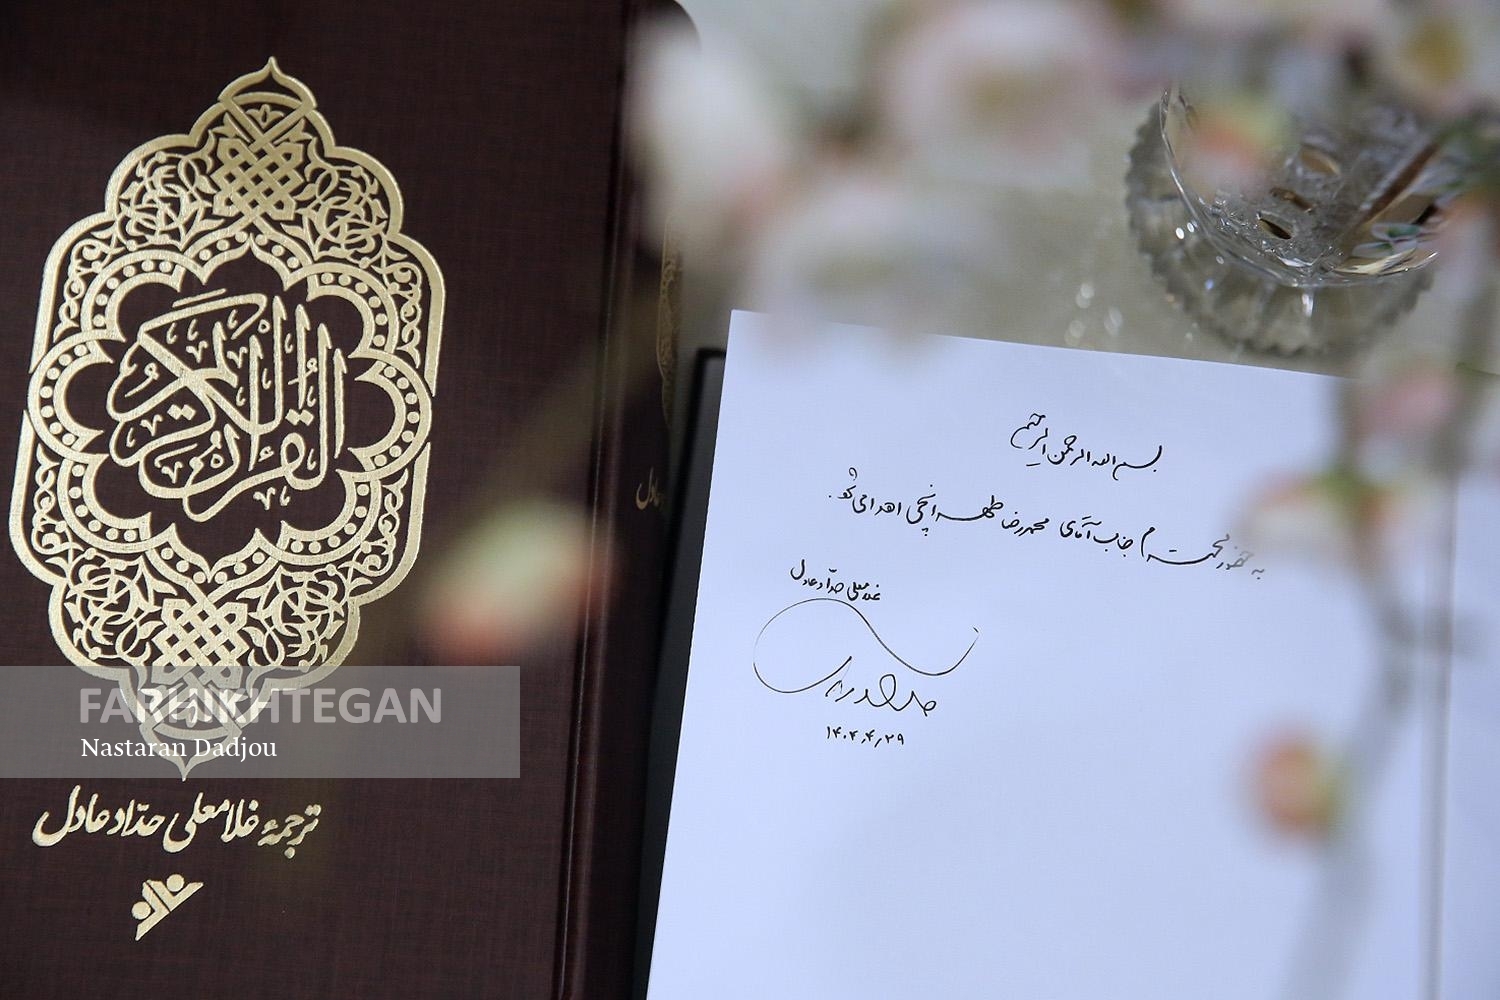 القرآن الكريم
ترجمهٔ غلامعلی حدّاد عادل
FARHIKHTEGAN
Nastaran Dadjou
بسم الله الرحمن الرحیم
به حضور محترم جناب آقای محمدرضا طهرانچی اهدا می‌شود.
غلامعلی حدّاد عادل
۱۴۰۴/۴/۲۹